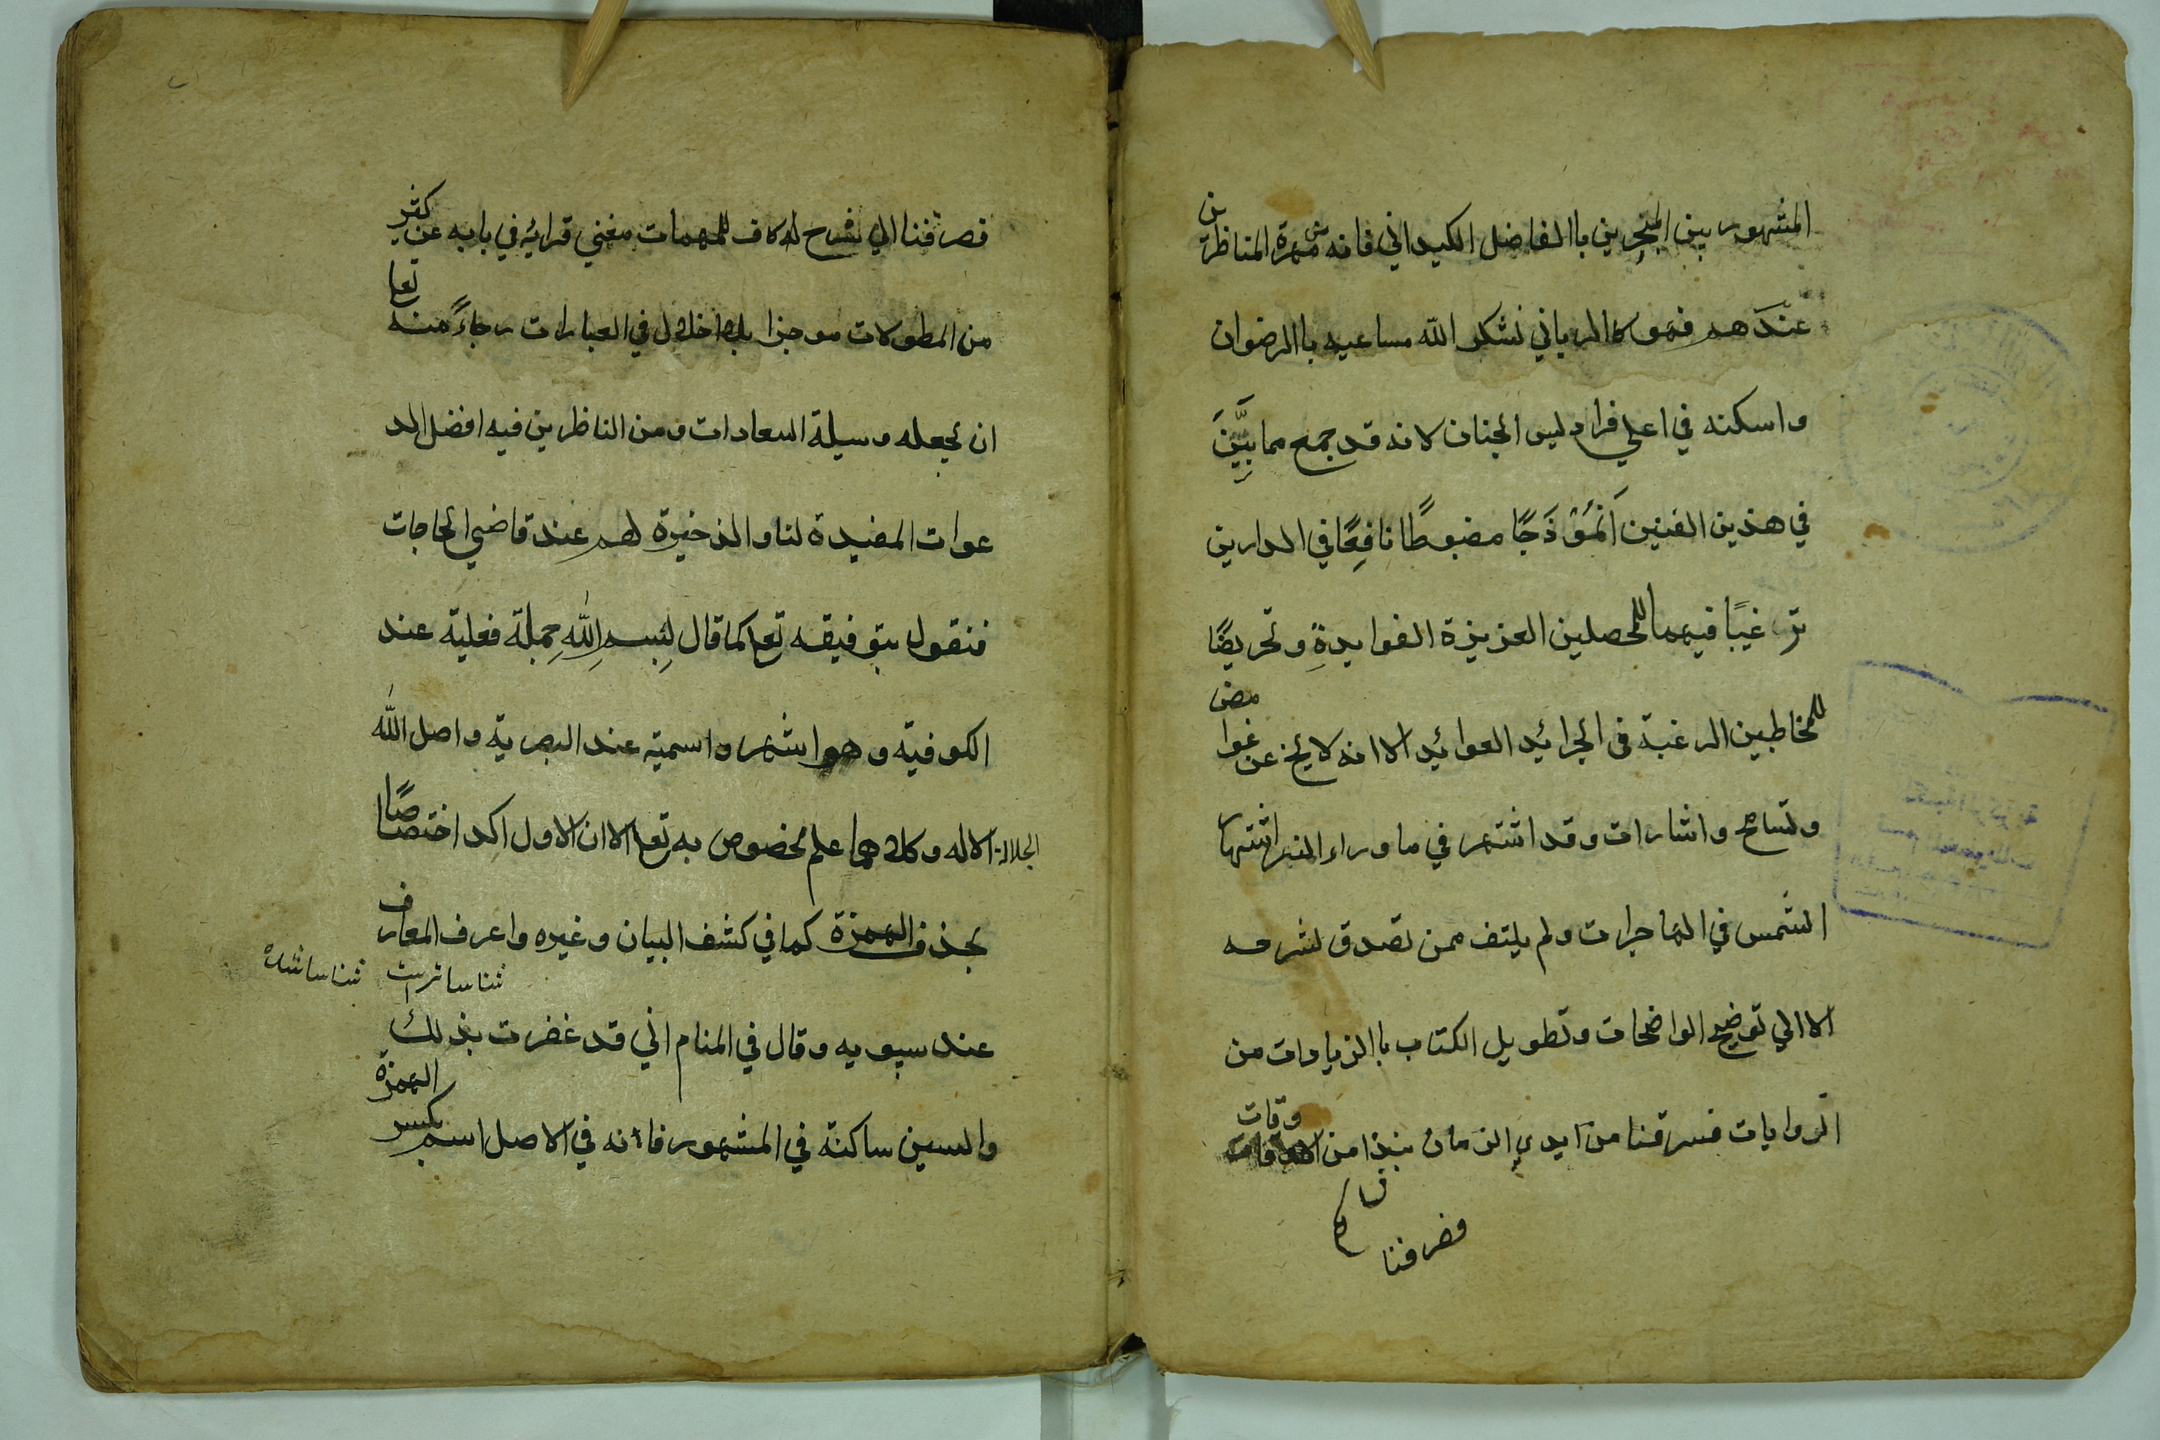 المشهور بين المتبحرين باالفاضل الكيداني فانه من مهرة المناظرين
عندهم فهو كاالرباني نشكر الله مساعيه باالرضوان
واسكنه في اعلي فراديس الجنان لانه قد جمع مما بيّن
في هذين الفنين اَنمُوْذَجًا مضبوطًا نافِعًا في الدارين
ترغيبًا فيهما للمحصلين العزيزة الفوايدةِ وتحريضًا
للمخاطبين الرغبة في الجرائد العوائد الا انه لا يخ عن غوامض
وتسامح واشارات وقد اشتهر في ما وراء النهر اشتهار
الشمس في الهاجرات ولم يلتف ممن تصدق لشرحه
الا الي توضيح الواضحات وتطويل الكتاب باالزيادات من
الروايات فسرقنا من ايدي الزمان نبذا من الاوقات
فصرفنا
فصرفنا الي شرح له كاف للمهمات مغني قرائه في بابه عن كثير
من المطولات موجزا بلا اخلال في العبارات رجاءً منه تعا
ان يجعله وسيلة السعادات ومن الناظرين فيه افضل الد
عوات المفيدة لنا والذخيرة لهم عند قاضي الحاجات
فنقول بتوفيقه تعا كما قال لِبِسمِ اللهِ جملة فعلية عند
الكوفية وهو اشهر واسمية عند البصرية واصل الله
الجلالة الاله وكلاهما علم مخصوص به تعا الا ان الاول اكد اختصاصًا
بحذف الهمزة كما في كشف البيان وغيره واعرف المعارف
شناساتراست شناساشده
عند سيبويه وقال في المنام اني قد غفرت بذلك
والسين ساكنة في المشهور فانه في الاصل اسم بكسر الهمزة